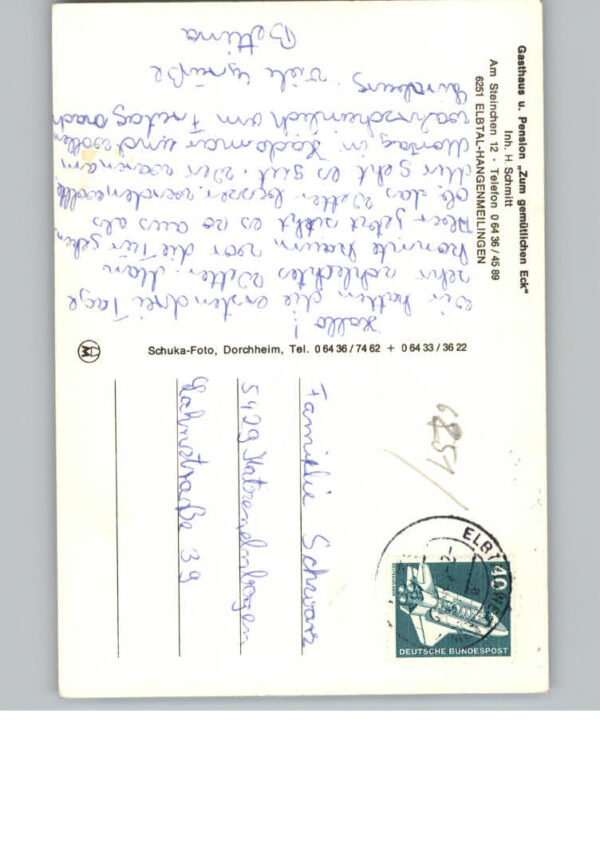 Gasthaus u. Pension „Zum gemütlichen Eck“
Inh. H. Schmitt
Am Steinchen 12 · Telefon 0 64 36 / 45 89
6251 ELBTAL-HANGENMEILINGEN
Hallo!
Wir hatten die ersten drei Tage
sehr schlechtes Wetter. Man
konnte kaum vor die Tür gehen.
Aber jetzt sieht es so aus als
ob das Wetter besser werden wollte.
Mir geht es gut. Wir waren am
Montag in Hadamar und wollen
wahrscheinlich am Freitag nach
Limburg.
Viele Grüße
Bettina
Schuka-Foto, Dorchheim, Tel. 0 64 36 / 74 62 + 0 64 33 / 36 22
Familie Schwarz
5429 Katzenelnbogen
Lahnstraße 39
ELBT
40
DEUTSCHE BUNDESPOST